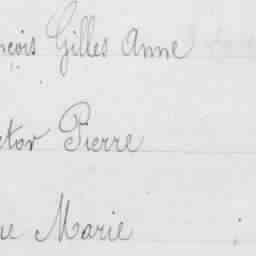 nçois Gilles Anne
ctor Pierre
ue Marie